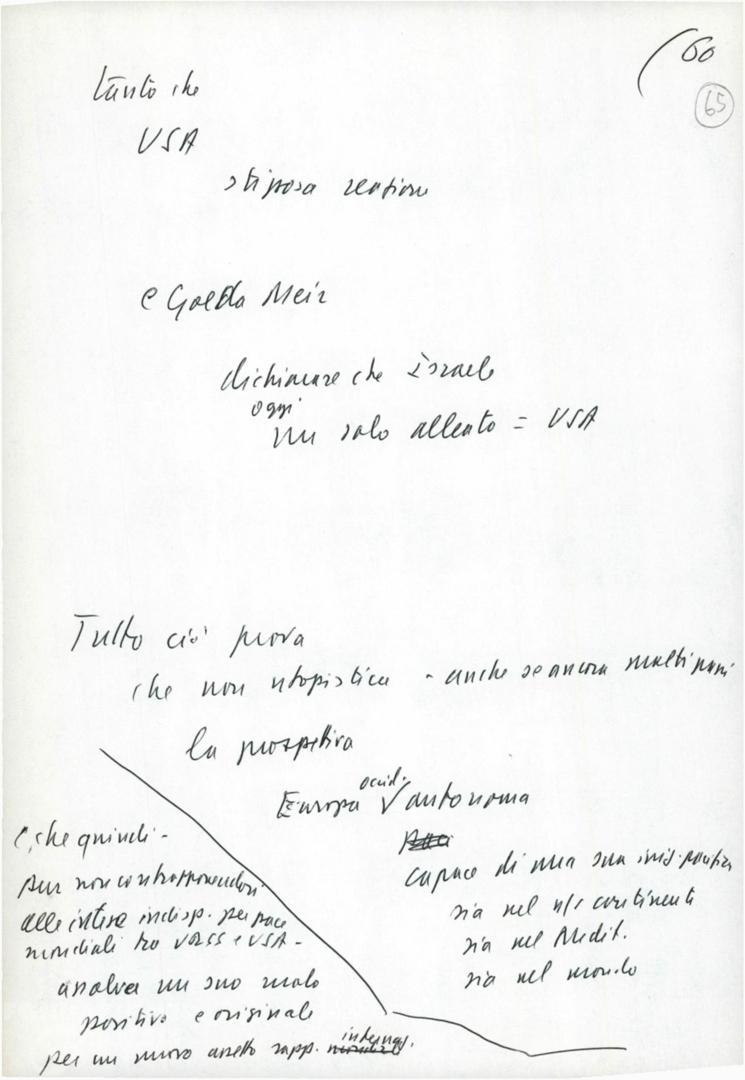 (60
65
tanto che
USA
stizzosa reazione
e Golda Meir
dichiarare che Israele
oggi
un solo alleato = USA
Tutto ciò prova
che non utopistica - anche se ancora molti passi
la prospettiva
Europa occid. autonoma
capace di una sua iniz. politica
sia nel n/s continente
sia nel Medit.
sia nel mondo
e, che quindi -
pur non contrapponendosi
alle intese indisp. per pace
mondiali tra URSS e USA -
assolva un suo ruolo
positivo e originale
per un nuovo assetto rapp. internaz.